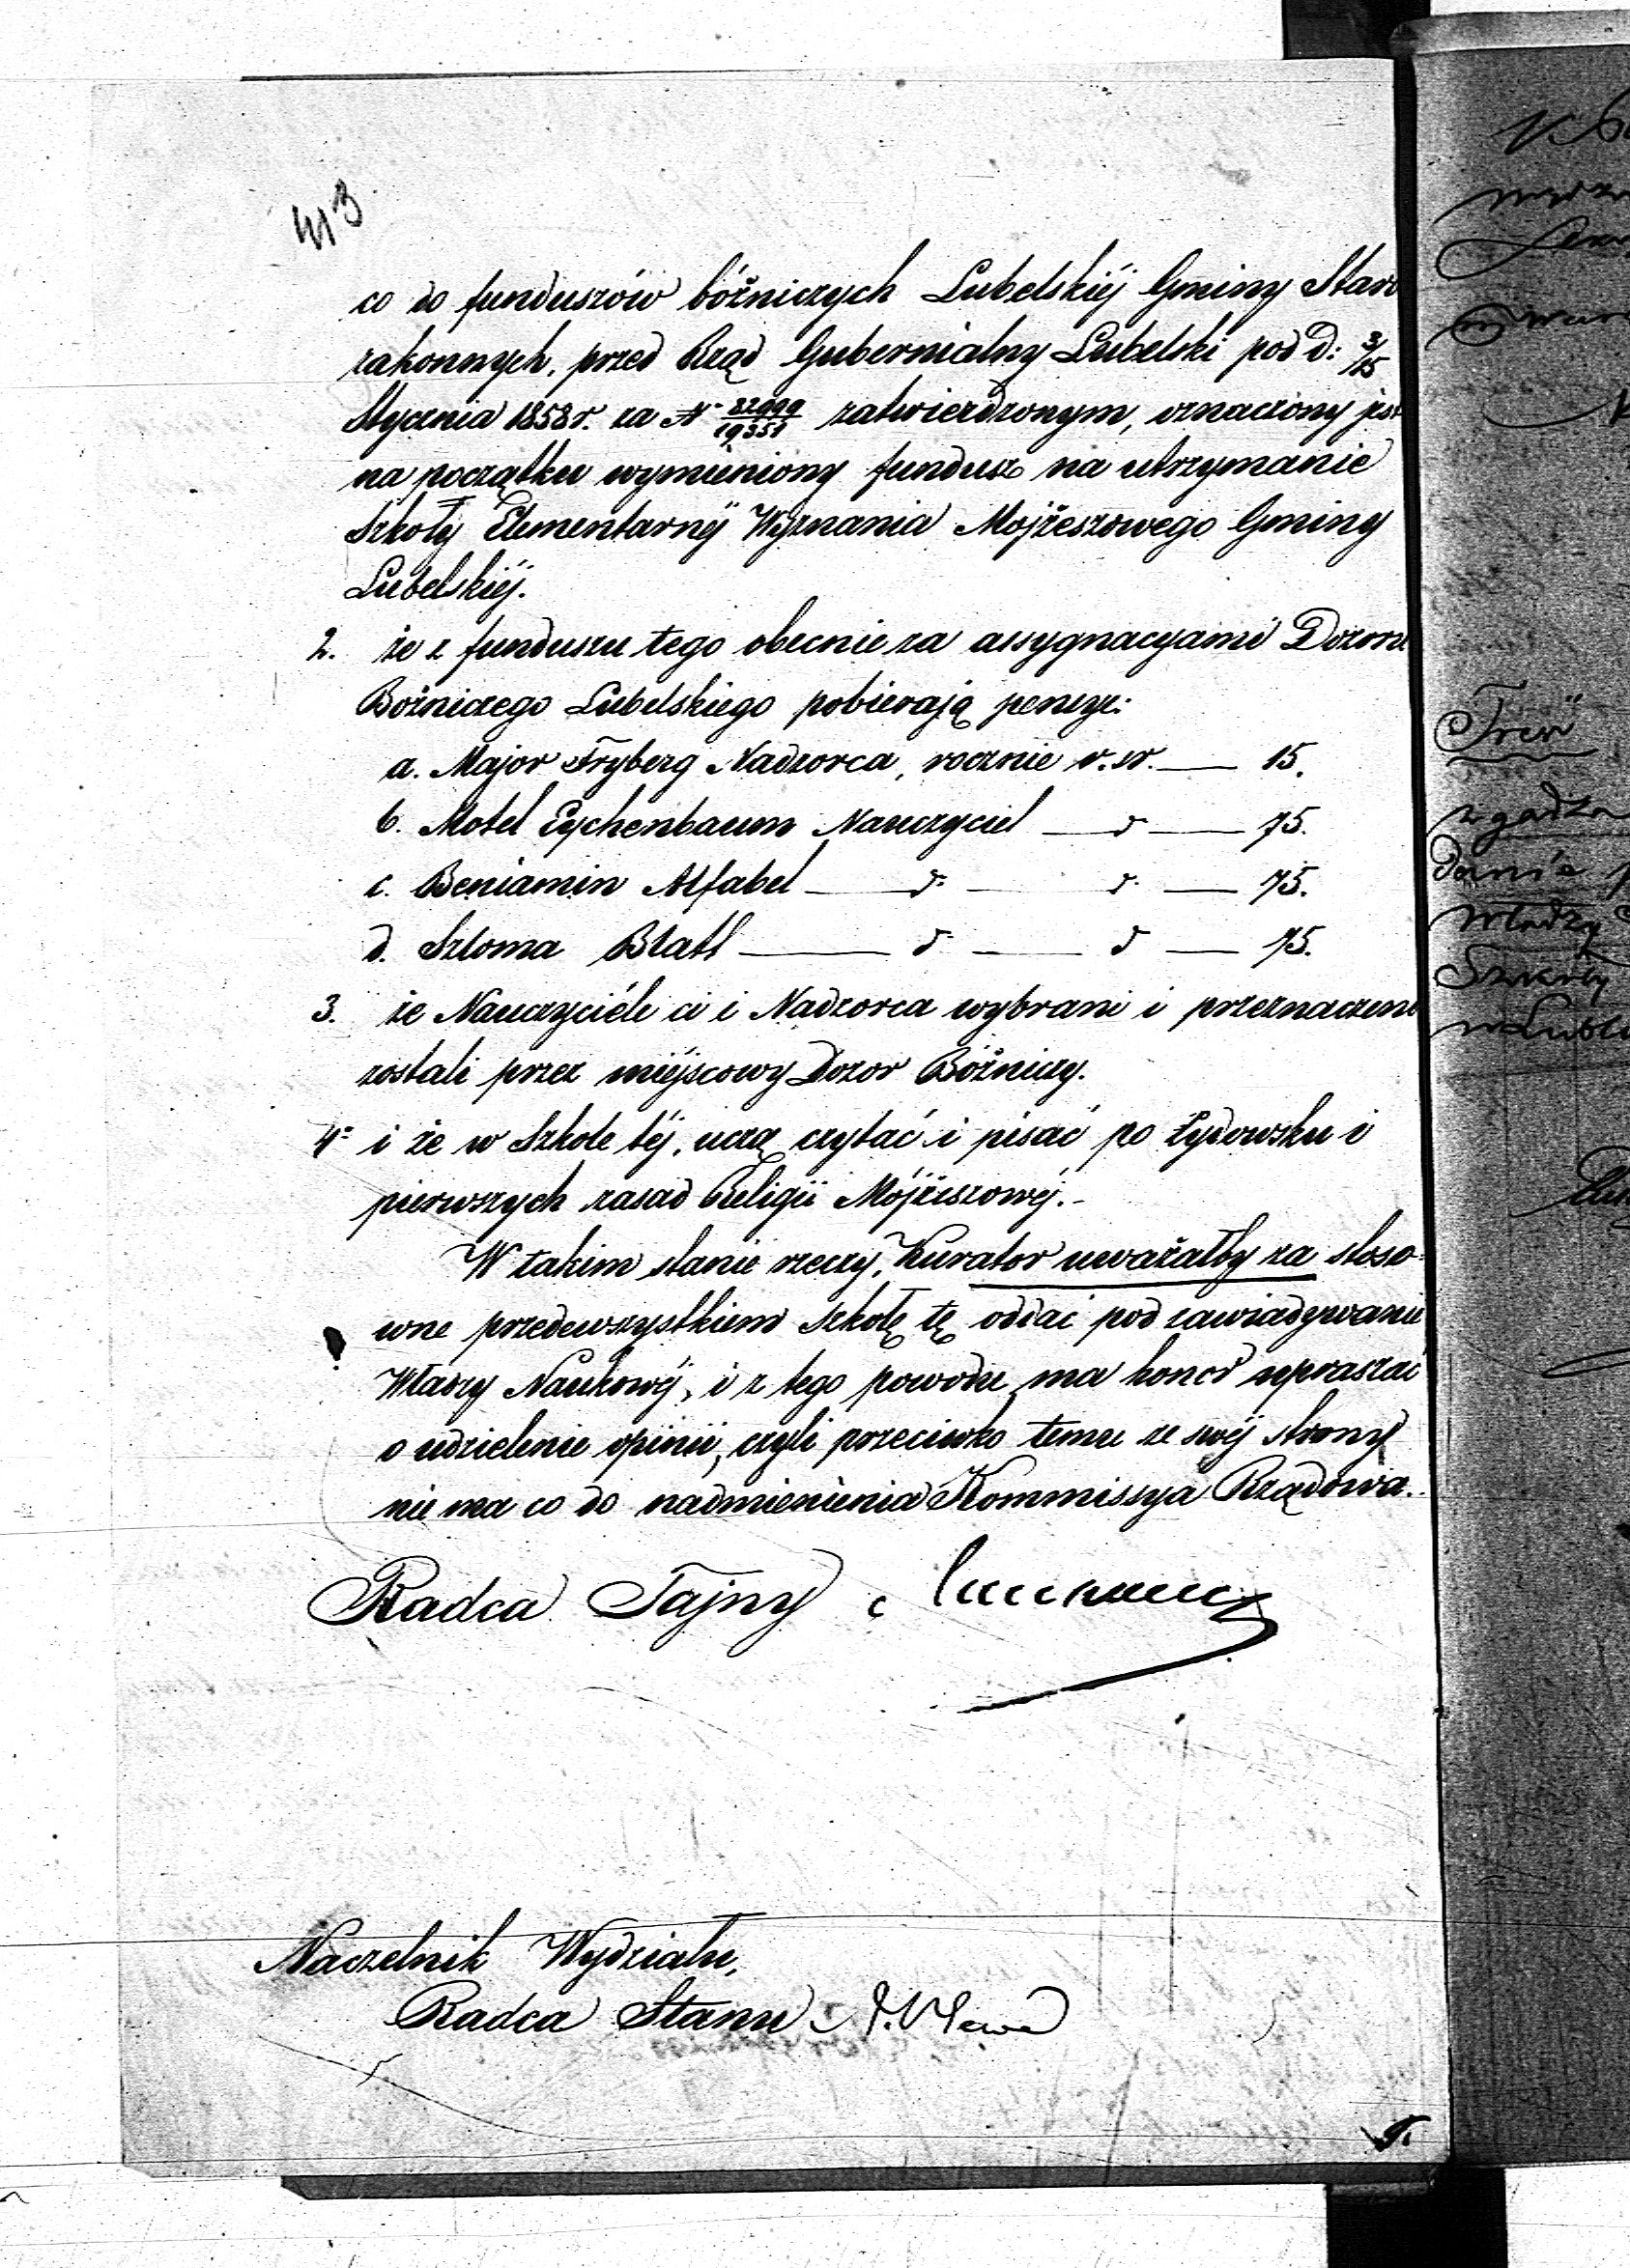 413
co do funduszów bóżniczych Lubelskiéj Gminy Staro
zakonnych, przed Rząd Gubernialny Lubelski pod D: 3/15
Stycznia 1858 r. za N° 82999/19351 zatwierdzonym, oznaczony jest
na początku wymieniony fundusz na utrzymanie
Szkoły Elementarnéj Wyznania Mojżeszowego Gminy
Lubelskiéj.
2. że z funduszu tego obecnie za assygnacyami Dozoru
Bożniczego Lubelskiego pobierają pensye:
a. Major Fryberg Nadzorca, rocznie r. sr. — 15.
b. Motel Eychenbaum Nauczyciel — d — 75.
c. Beniamin Alfabel — d: — d. — 75.
d. Szloma Blatt — d — d — 75.
3. że Nauczyciéle ci i Nadzorca wybrani i przeznaczeni
zostali przez miéjscowy Dozor Bóżniczy.
4° i że w Szkole téj, uczą czytać i pisać po żydowsku i
pierwszych zasad Religii Mójżeszowéj.-
W takim stanie rzeczy, Kurator uważałby za stoso-
wne przedewszystkiem szkołę tę oddać pod zawiadywanie
Władzy Naukowéj, i z tego powodu ma honor upraszać
o udzielenie opinii, czyli przeciwko temu ze swéj strony
nie ma co do nadmienienia Kommissya Rządowa.
Radca Tajny
Naczelnik Wydziału,
Radca Stanu
zgadza
danie
Władzy
Szkoły